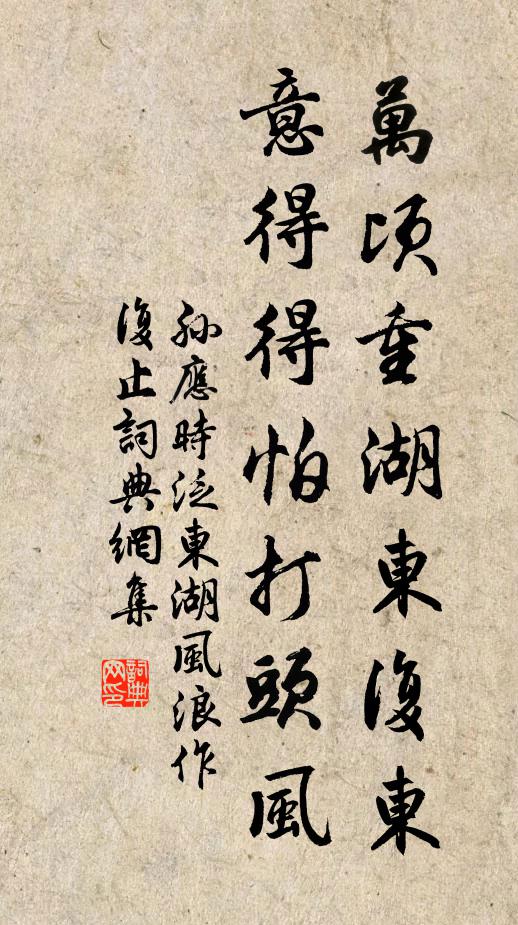 萬頃重湖東復東
意得得怕打頭風
孫應時泛東湖風浪作
復止詞典網集
詞典網印